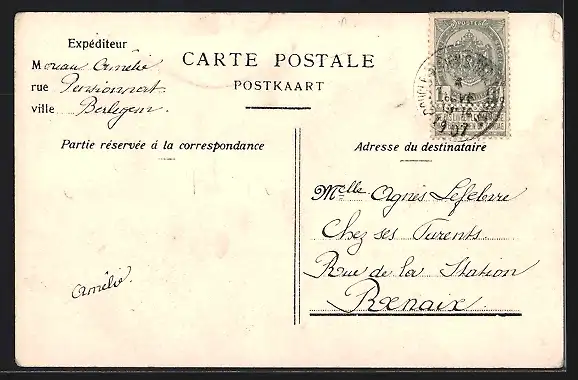 Expéditeur
Moreau Amélie
rue Pensionnat
ville Berlegem
CARTE POSTALE
POSTKAART
Partie réservée à la correspondance
Adresse du destinataire
Melle Agnès Lefebvre
Chez ses Parents.
Rue de la Station
Renaix.
Amélie.
1907